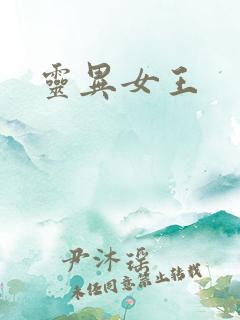 靈異女王
尹沐瑶
未經同意禁止轉載